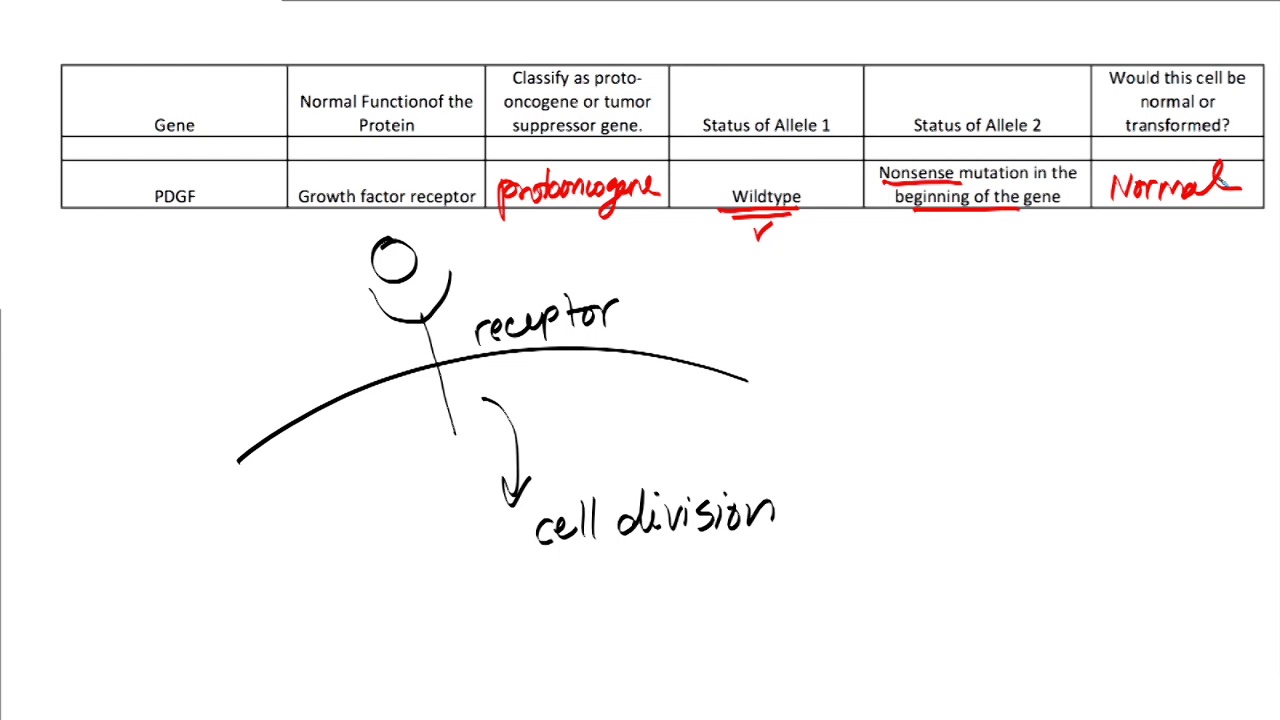 Gene
Normal Functionof the
Protein
Classify as proto-
oncogene or tumor
suppressor gene.
Status of Allele 1
Status of Allele 2
Would this cell be
normal or
transformed?
PDGF
Growth factor receptor
protooncogene
Wildtype
Nonsense mutation in the
beginning of the gene
Normal
receptor
cell division